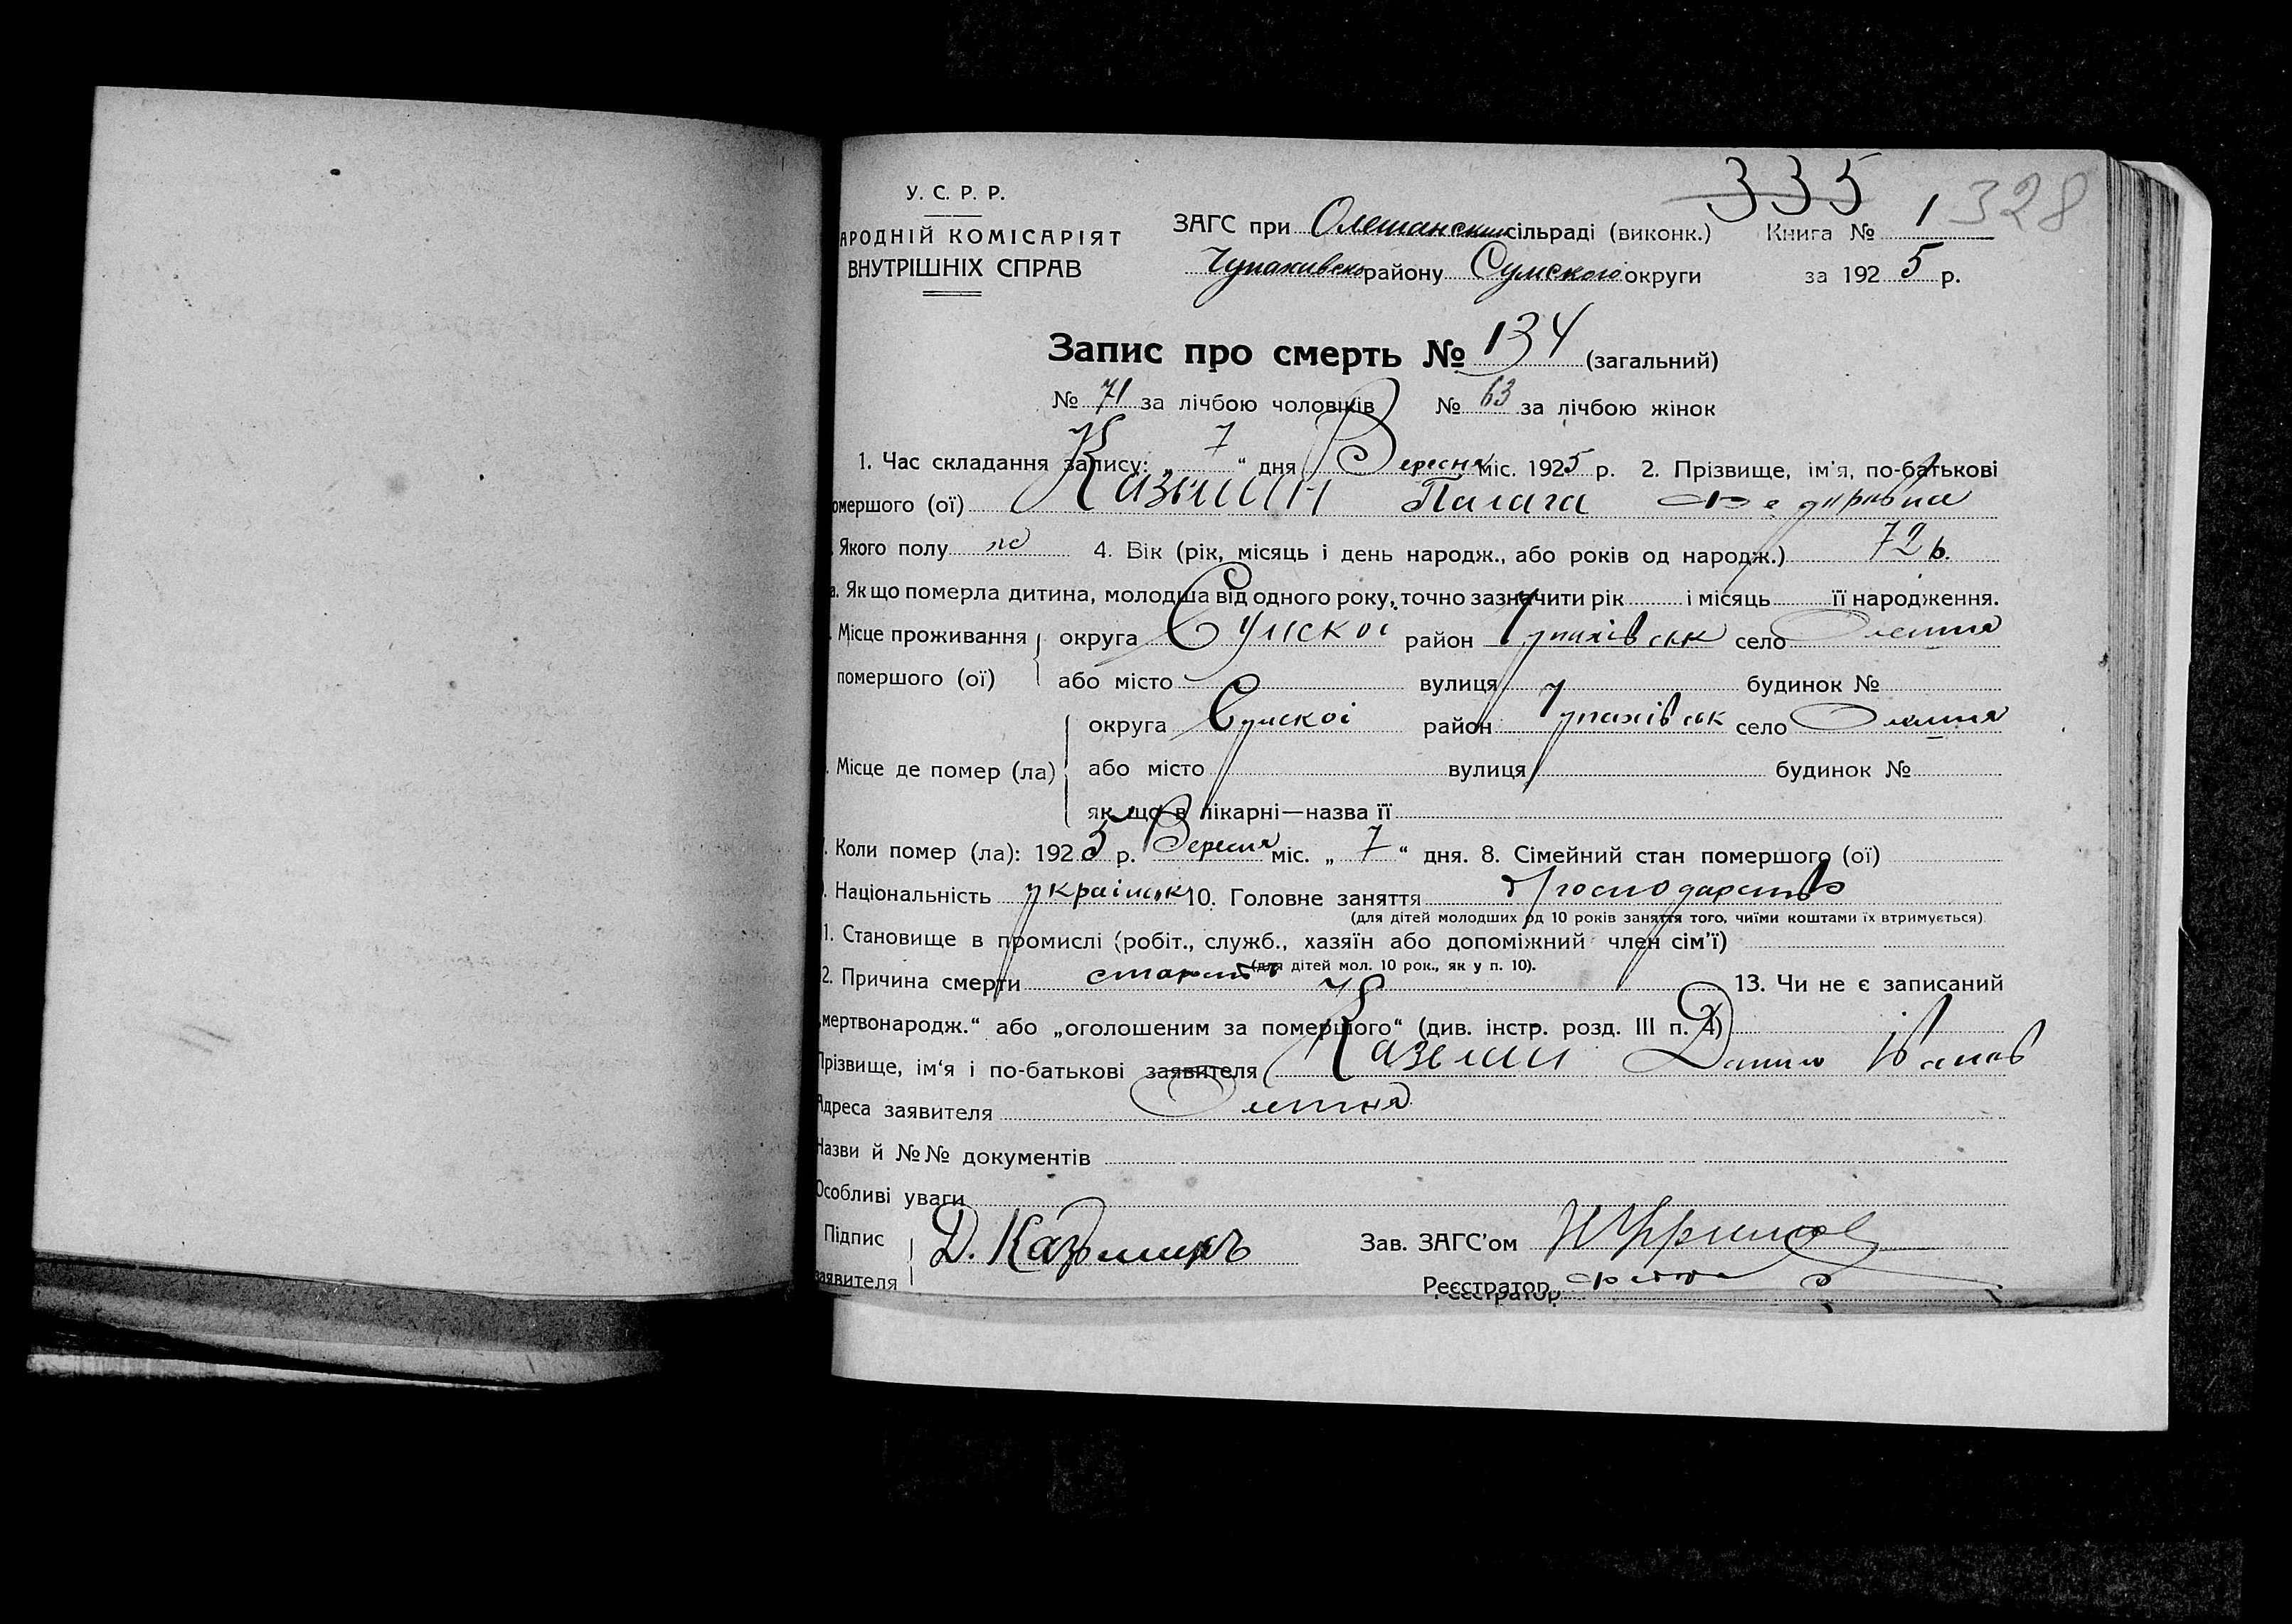 335
328
У. С. Р. Р.
АРОДНІЙ КОМІСАРІЯТ
ВНУТРІШНІХ СПРАВ
ЗАГС при Олешанским сільраді (виконк.) Книга № 1
Чупахивско району Сумского округи за 1925 р.
Запис про смерть № 134 (загальний)
№ 71 за лічбою чоловіків № 63 за лічбою жінок
1. Час складання запису: „ 7 “ дня Вересня міс. 1925 р. 2. Прізвище, ім'я, по-батькові
омершого (ої) Казьмин Палага Федировна
Якого полу ж 4. Вік (рік, місяць і день народж., або років од народж.) 72 в.
а. Як що померла дитина, молодша від одного року, точно зазначити рік і місяць її народження.
Місце проживання округа Сумскоі район Чупахівськ село Олешня
помершого (ої) або місто вулиця будинок №
округа Сумскоі район Чупахівськ село Олешня
Місце де помер (ла) або місто вулиця будинок №
як що в лікарні—назва її
Коли помер (ла): 1925 р. Вересня міс. „ 7 “ дня. 8. Сімейний стан помершого (ої)
Національність українськ 10. Головне заняття господарство
(для дітей молодших од 10 років заняття того, чиїми коштами їх втримується)
1. Становище в промислі (робіт., служб., хазяїн або допоміжний член сім'ї)
(для дітей мол. 10 рок., як у п. 10).
2. Причина смерти старость 13. Чи не є записаний
„мертвонародж.“ або „оголошеним за помершого“ (див. інстр. розд. III п. 4)
Прізвище, ім'я і по-батькові заявителя Казьмин Данило Іванов
Адреса заявителя Олешня
Назви й №№ документів
Особливі уваги
Підпис Д. Казьминъ Зав. ЗАГС'ом
заявителя Реєстратор